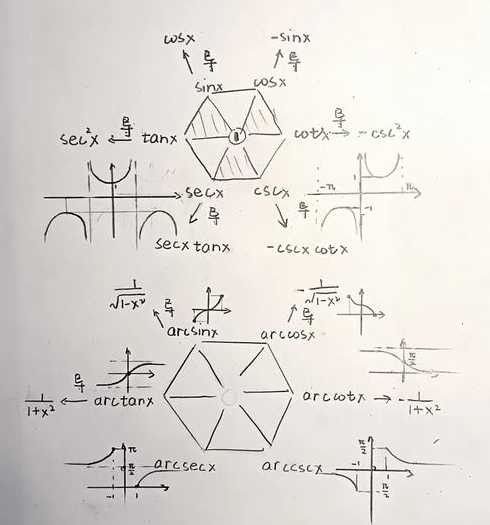 cosx
-sinx
导
导
sinx
cosx
sec²x
导
tanx
1
cotx
导
-csc²x
1
-π
1
π
-1
secx
cscx
导
导
secx tanx
-cscx cotx
1/√(1-x²)
导
-1/√(1-x²)
导
arcsinx
arccosx
π/2
1/(1+x²)
导
arctanx
arccotx
-1/(1+x²)
π
π/2
-1
1
arcsecx
arccscx
π/2
-1
1
-π/2